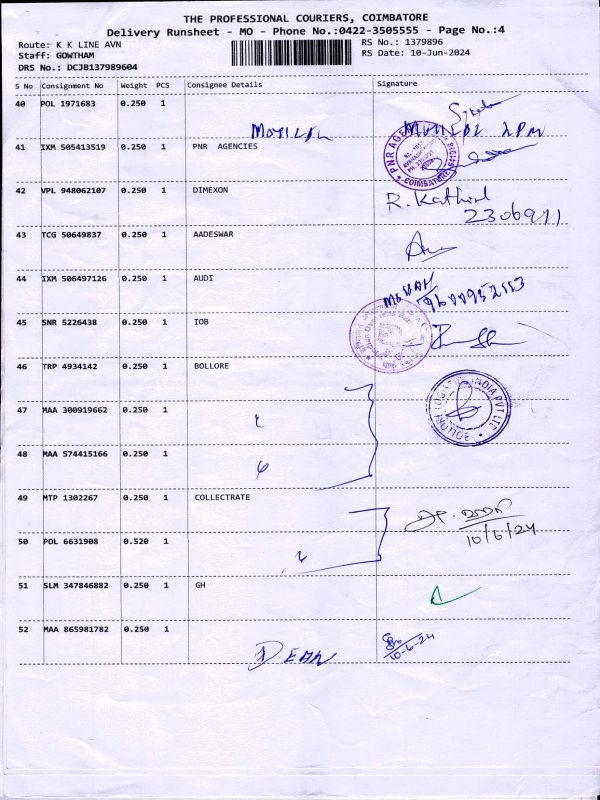 THE PROFESSIONAL COURIERS, COIMBATORE
Delivery Runsheet - MO - Phone No.:0422-3505555 - Page No.:4
Route: K K LINE AVN
RS No.: 1379896
Staff: GOWTHAM
RS Date: 10-Jun-2024
DRS No.: DCJB137989604
S No Consignment No Weight PCS Consignee Details Signature
40 POL 1971683 0.250 1
41 IXM 505413519 0.250 1 PNR AGENCIES
PNR AGENCIES
COIMBATORE
42 VPL 948062107 0.250 1 DIMEXON
R. Kathird
2306911
43 TCG 50649837 0.250 1 AADESWAR
44 IXM 506497126 0.250 1 AUDI
MOHAN
45 SNR 5226438 0.250 1 IOB
46 TRP 4934142 0.250 1 BOLLORE
INDIA PVT LTD
47 MAA 300919662 0.250 1
48 MAA 574415166 0.250 1
49 MTP 1302267 0.250 1 COLLECTRATE
10/6/24
50 POL 6631908 0.520 1
51 SLM 347846882 0.250 1 GH
52 MAA 865981782 0.250 1
DEAN
10-6-24